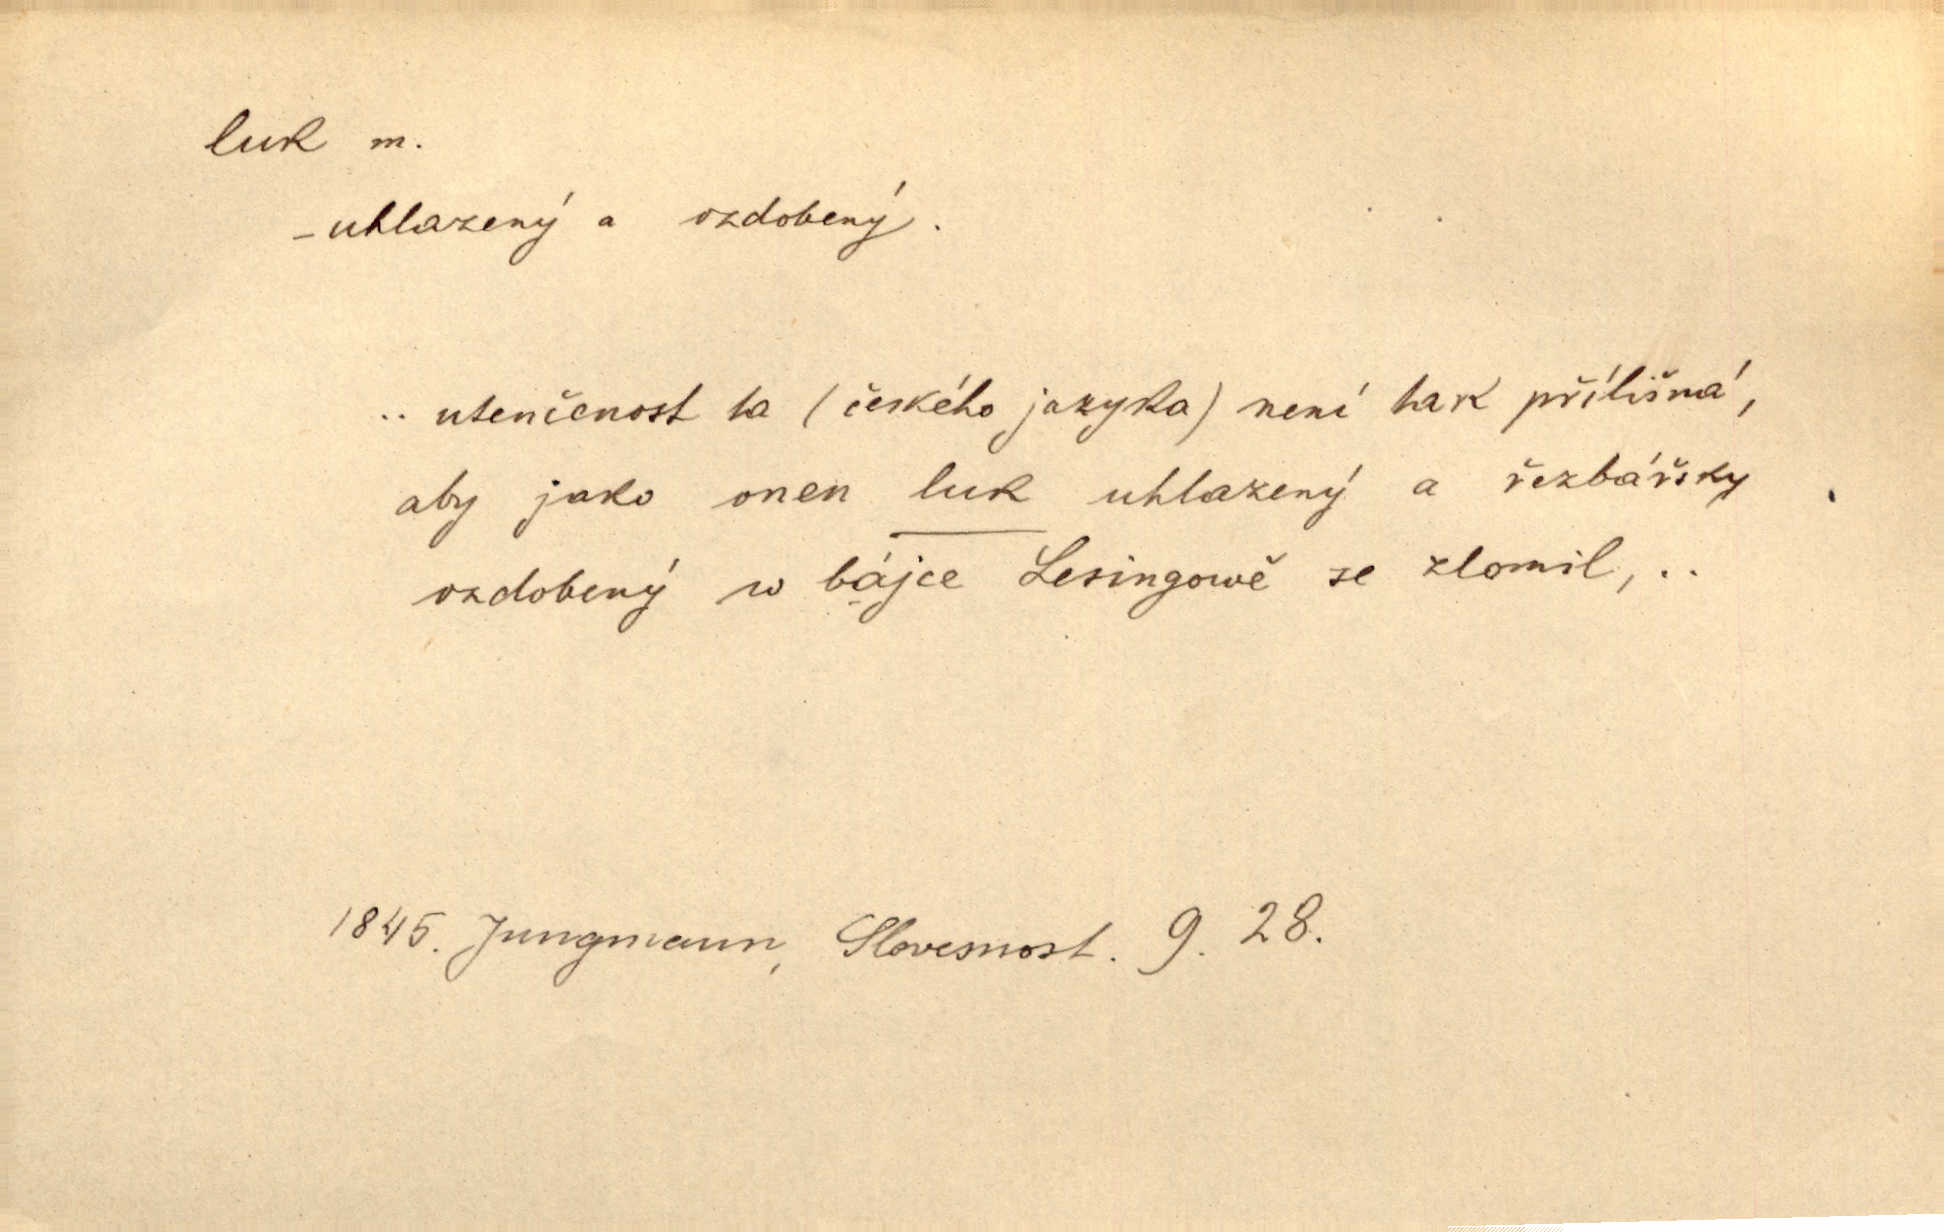 luk m.
- uhlazený a ozdobený.
.. utenčenost ta (českého jazyka) není tak přílišná,
aby jako onen luk uhlazený a řezbářsky
ozdobený w bájce Lesingowě se zlomil, ..
1845. Jungmann, Slovesnost. 9. 28.